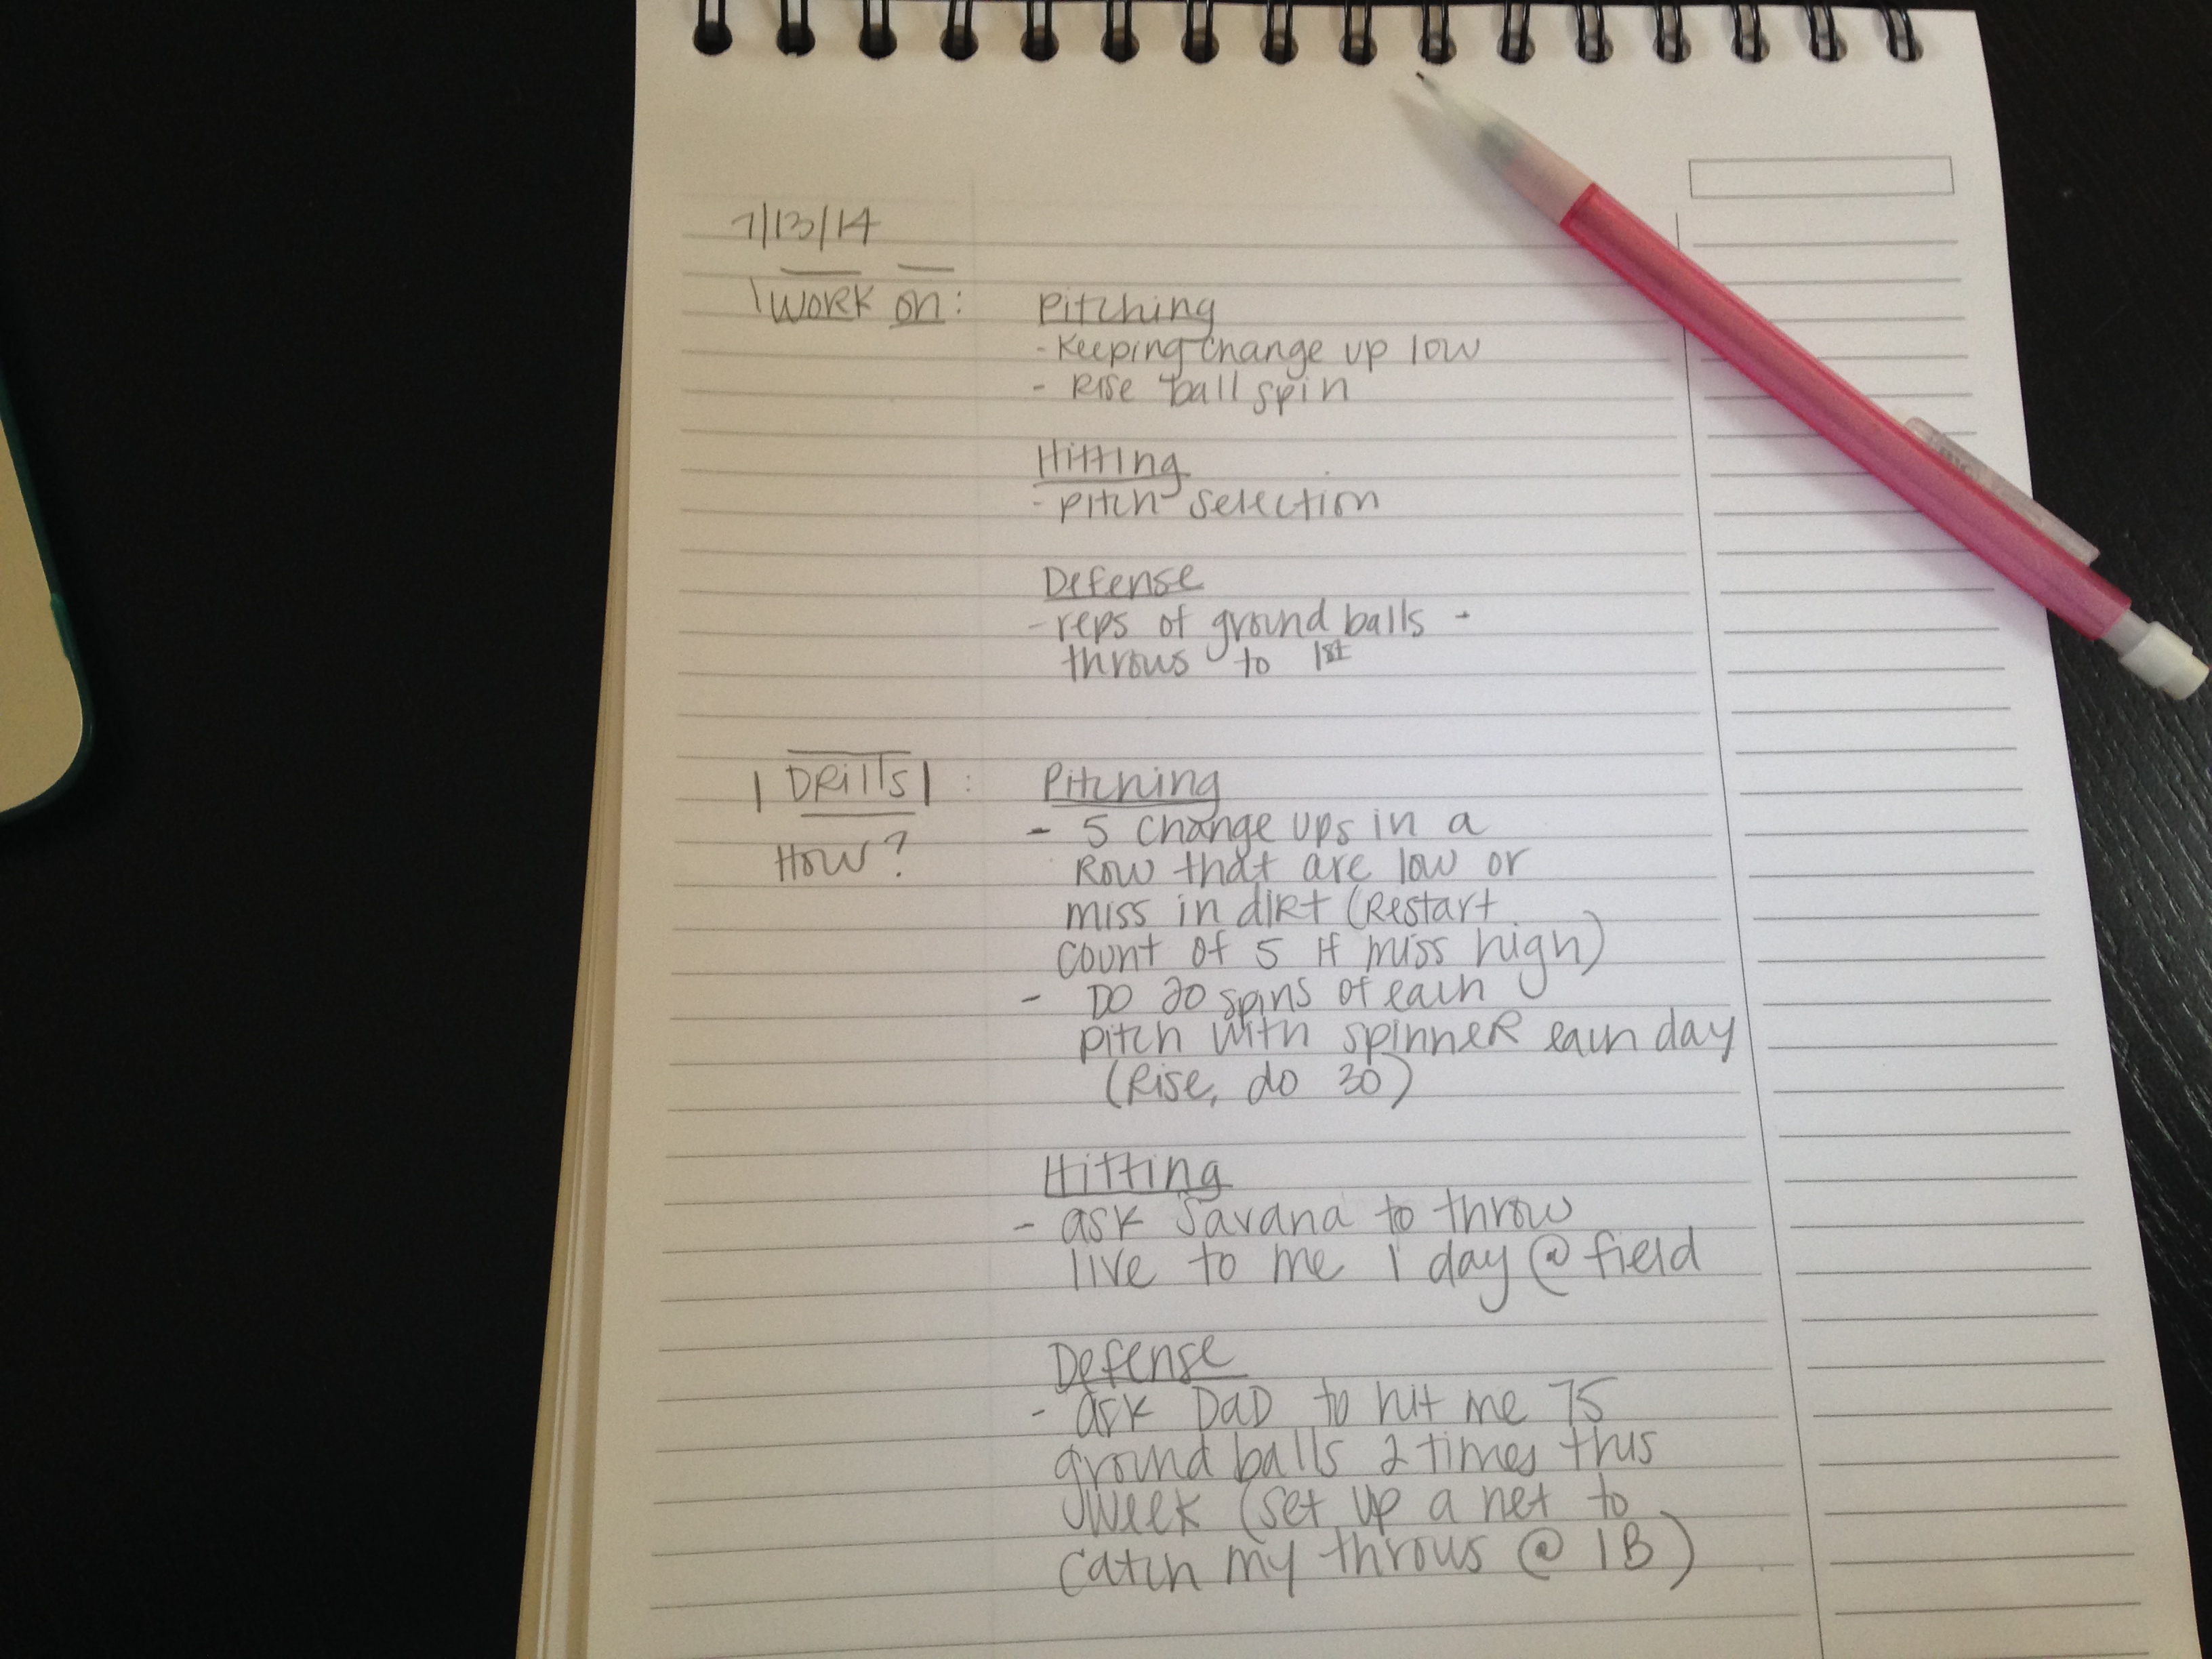 7/13/14
Work on:
Pitching
- Keeping change up low
- Rise ball spin
Hitting
- pitch selection
Defense
- reps of ground balls -
throws to 1st
Drills:
How?
Pitching
- 5 change ups in a
Row that are low or
miss in dirt (Restart
count of 5 if miss high)
- Do 20 spins of each
pitch with spinner each day
(Rise, do 30)
Hitting
- ask Savana to throw
live to me 1 day @ field
Defense
- ask Dad to hit me 75
ground balls 2 times this
week (set up a net to
catch my throws @ 1B)